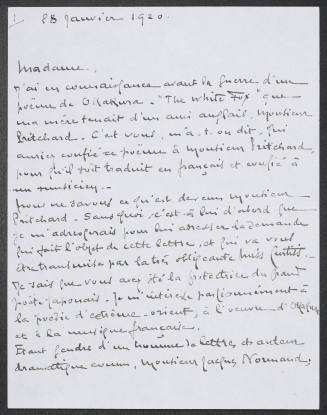 1
28 Janvier 1920.
Madame,
J'ai eu connaissance avant la guerre d'un
poème de Okakura. "The White Fox" que
ma mère tenait d'un ami anglais, Monsieur
Pritchard. C'est vous, m'a-t-on dit, qui
auriez confié ce poème à Monsieur Pritchard,
pour qu'il soit traduit en français et confié à
un musicien.
Nous ne savons ce qu'est devenu Monsieur
Pritchard. Sans quoi, c'est à lui d'abord que
je m'adresserais pour lui adresser la demande
qui fait l'objet de cette lettre, et qui va vous
être transmise par la très obligeante Miss
Je sais que vous avez été la protectrice du grand
poète japonais. Je m'intéresse passionnément à
la poésie d'extrême-orient, à l'oeuvre d'Okakura
et à la musique française.
Étant gendre d'un homme de lettres et auteur
dramatique connu, Monsieur Jacques Normand,